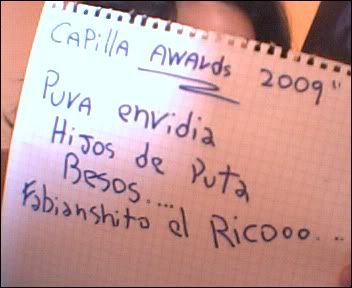 CAPillA AWARds 2009"
PURA envidia
HiJos de Puta
Besos....
Fabianshito el Ricooo...